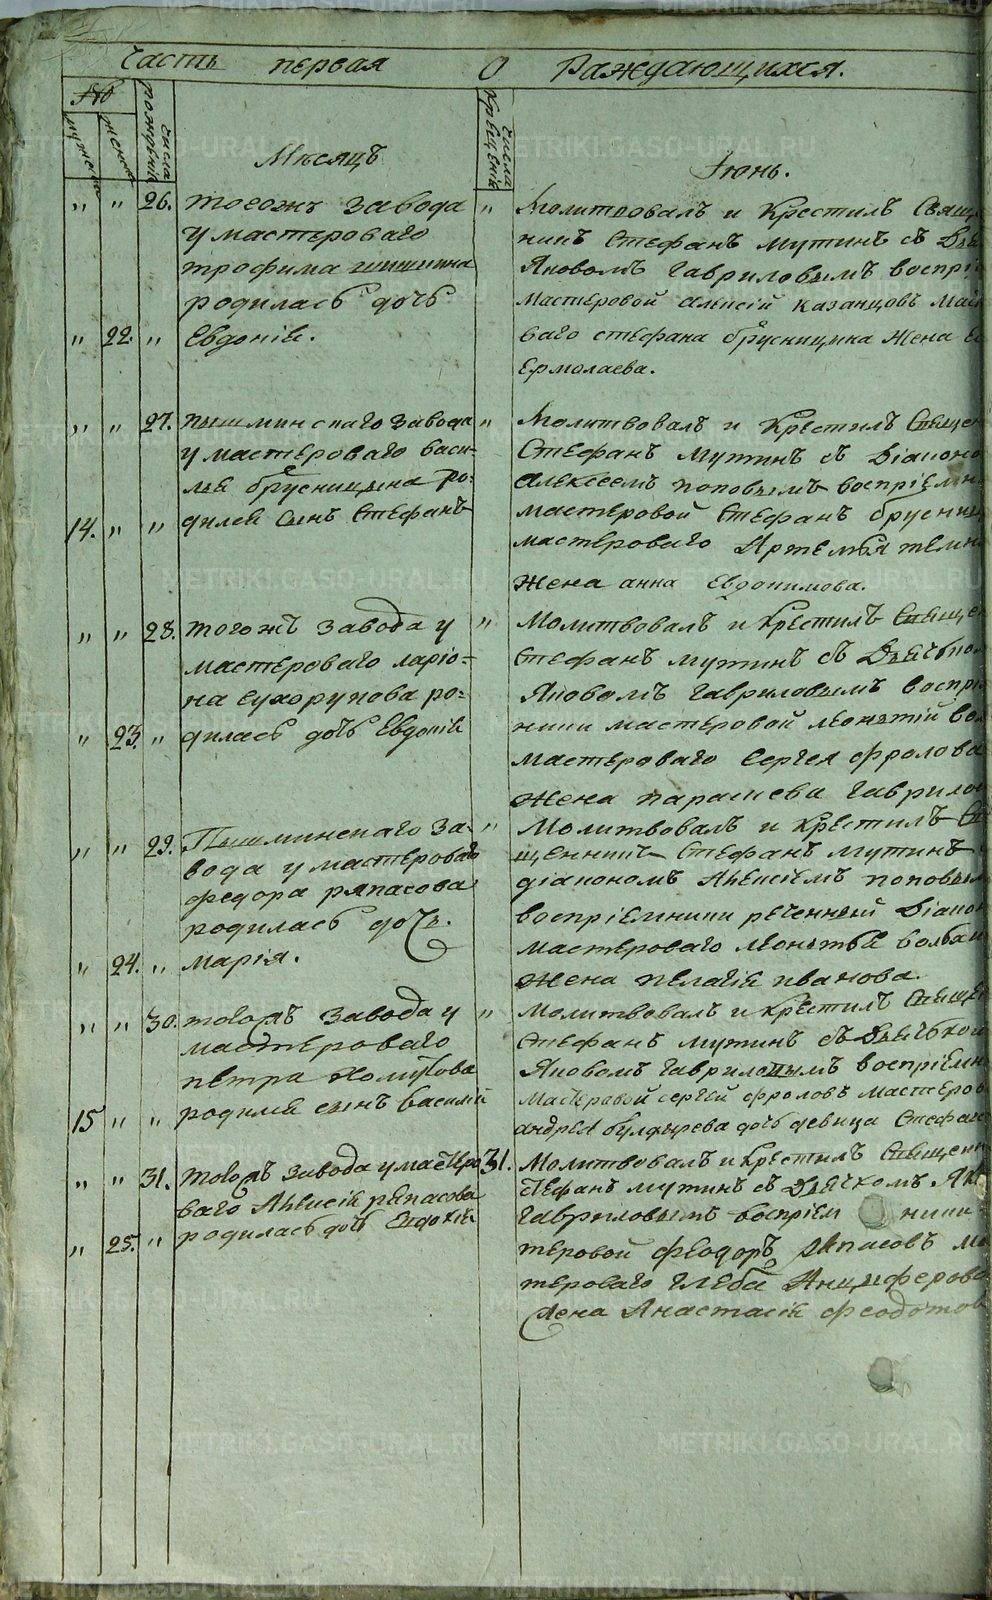 Часть первая О Раждающихся.
№
мужеска
женска
числа рожденiй
Мѣсяцъ
числа крещенiй
Iюнь.
" " 26. тогожъ завода
у мастероваго
трофима шишкина
родилась дочь
" 22. " Евдокiя.
" Молитвовалъ и Крестилъ Свяще
никъ Стефанъ мутинъ съ
Яковомъ гавриловымъ воспрiе
мастеровой алексiй казанцовъ ма
ваго стефана брусницина жена
ермолаева.
" " 27. пышминскаго завода
у мастероваго васи-
лья брусницына ро-
14. " " дился сынъ Стефанъ
" Молитвовалъ и Крестилъ Священ
Стефанъ мутинъ съ Дiаконо
алексеемъ поповымъ воспрiемн
мастеровой Стефанъ брусниц
мастероваго Артемья
жена анна Евдокимова.
" " 28. тогожъ завода у
мастероваго ларiо-
на сухорукова ро-
" 23. " дилась дочь Евдокiя
" Молитвовалъ и крестилъ Священ
стефанъ мутинъ съ Дьячкомъ
Яковомъ гавриловымъ воспрiе
ники мастеровой леонтiй
мастероваго Сергея фролова
жена параскева гаврилов
" " 29. Пышминскаго за-
вода у мастероваго
федора ряпасова
родилась дочь.
" 24. " марiя.
" Молитвовалъ и крестилъ Свя
щенникъ Стефанъ мутинъ
дiакономъ Алексiемъ поповым
воспрiемники реченный Дiакон
мастероваго леонтья
жена пелагiя иванова.
" " 30. тогожъ завода у
мастероваго
петра хомутова
15 " " родился сынъ василiй
" Молитвовалъ и крестилъ Священ
стефанъ мутинъ съ Дьячком
Яковомъ гавриловымъ воспрiемн
мастеровой сергей фроловъ мастеров
андрея булдырева дочь девица Стефан
" " 31. тогожъ завода у мастеро
ваго Алексiя ряпасова
" 25. " родилась дочь Евдокiя
31. Молитвовалъ и крестилъ Священн
стефанъ мутинъ съ Дьячкомъ Як
гавриловымъ воспрiем ники
теровой феодоръ ряпасовъ ма
тероваго глеба Анциферова
жена Анастасiя феодотов
METRIKI.GASO-URAL.RU